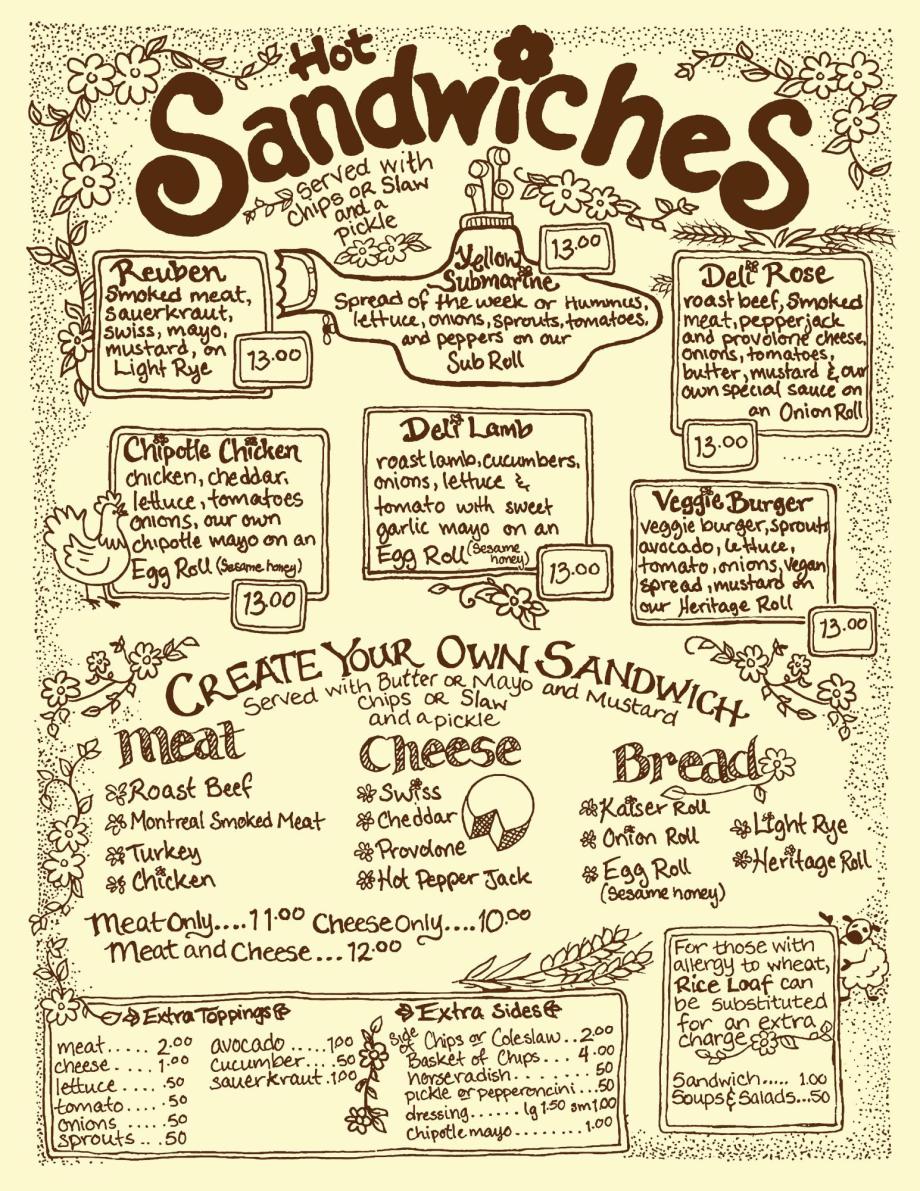 Hot
Sandwiches
served with
Chips or Slaw
and a
pickle
Reuben
Smoked meat,
sauerkraut,
swiss, mayo,
mustard, on
Light Rye
13.00
Yellow
Submarine
Spread of the week or Hummus,
lettuce, onions, sprouts, tomatoes,
and peppers on our
Sub Roll
13.00
Deli Rose
roast beef, Smoked
meat, pepperjack
and provolone cheese,
onions, tomatoes,
butter, mustard & our
own special sauce on
an Onion Roll
13.00
Chipotle Chicken
chicken, cheddar,
lettuce, tomatoes
onions, our own
chipotle mayo on an
Egg Roll (Sesame honey)
13.00
Deli Lamb
roast lamb, cucumbers,
onions, lettuce &
tomato with sweet
garlic mayo on an
Egg Roll (Sesame honey)
13.00
Veggie Burger
veggie burger, sprouts
avocado, lettuce,
tomato, onions, vegan
spread, mustard on
our Heritage Roll
13.00
CREATE YOUR OWN SANDWICH
Served with Butter or Mayo and Mustard
Chips or Slaw
and a pickle
Meat
Roast Beef
Montreal Smoked Meat
Turkey
Chicken
Cheese
Swiss
Cheddar
Provolone
Hot Pepper Jack
Bread
Kaiser Roll
Onion Roll
Egg Roll
(Sesame honey)
Light Rye
Heritage Roll
Meat Only....11.00 Cheese Only....10.00
Meat and Cheese...12.00
Extra Toppings
meat..... 2.00
cheese.... 1.00
lettuce .... .50
tomato..... .50
onions .... .50
sprouts ... .50
avocado .... 1.00
cucumber... .50
sauerkraut .1.00
Extra Sides
Side of Chips or Coleslaw..2.00
Basket of Chips... 4.00
horseradish........ .50
pickle or pepperoncini...50
dressing....... lg 1.50 sm 1.00
Chipotle mayo......... 1.00
For those with
allergy to wheat,
Rice Loaf can
be substituted
for an extra
charge
Sandwich..... 1.00
Soups & Salads...50